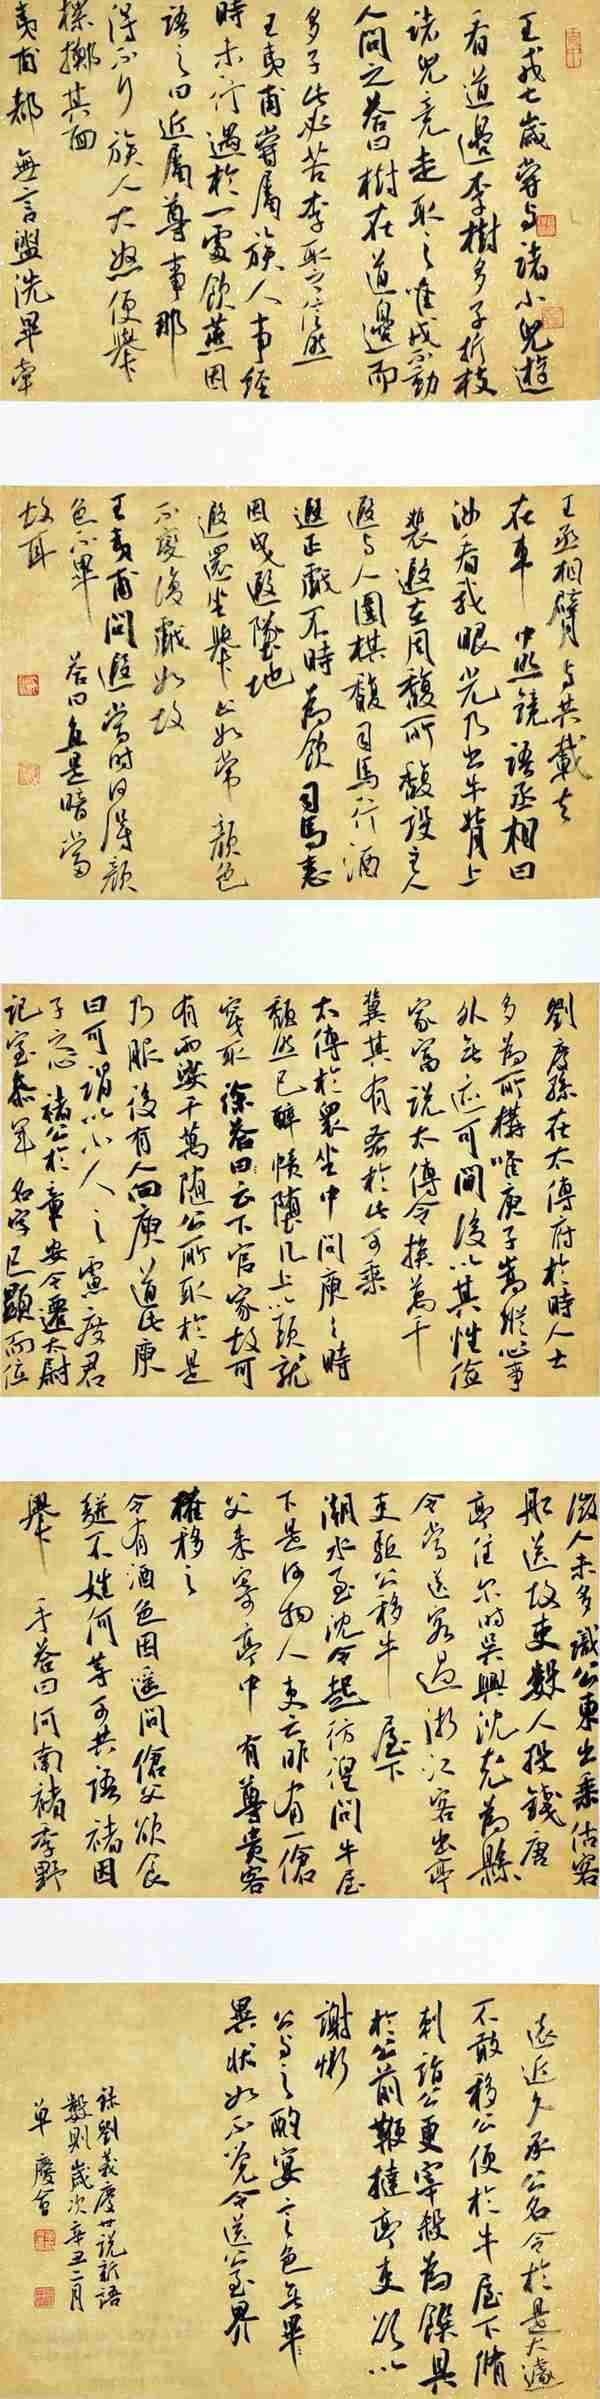 王戎七歲嘗与諸小兒遊
看道邊李樹多子折枝
諸兒競走取之唯戎不動
人問之答曰樹在道邊而
多子此必苦李取之信然
王夷甫嘗屬族人事經
時未行遇於一處飲燕因
語之曰近屬尊事那
得不行族人大怒便舉
樏擲其面
夷甫都無言盥洗畢牽
王丞相臂与共載去
在車中照鏡語丞相曰
汝看我眼光乃出牛背上
裴遐在周馥所馥設主人
遐与人圍棋馥司馬行酒
遐正戲不時為飲司馬恚
因曳遐墜地
遐還坐舉止如常顏色
不變復戲如故
王夷甫問遐當時何得顏
色不異答曰直是暗當
故耳
劉慶孫在太傅府於時人士
多為所構唯庾子嵩縱心事
外無迹可間後以其性儉
家富說太傅令換千萬
冀其有吝於此可乘
太傅於眾坐中問庾庾時
頹然已醉幘墮几上以頭就
穿取徐答曰云下官家故可
有兩娑千萬隨公所取於是
乃服後有人向庾道此庾
曰可謂以小人之慮度君
子之心褚公於章安令遷太尉
記室參軍名字已顯而位
微人未多識公東出乘估客
船送故吏數人投錢唐
亭住尔時吳興沈充為縣
令當送客過浙江客出亭
吏驅公移牛屋下
潮水至沈令起彷徨問牛屋
下是何物人吏云昨有一傖
父來寄亭中有尊貴客
權移之
令有酒色因遙問傖父欲食
䴵不姓何等可共語褚因
舉手答曰河南褚季野
遠近久承公名令於是大遽
不敢移公便於牛屋下脩
刺詣公更宰殺為饌具
於公前鞭撻亭吏欲以
謝慚
公与之酌宴言色無異
狀如不覺令送公至界
錄劉義慶世說新語
數則歲次辛丑二月
單慶會